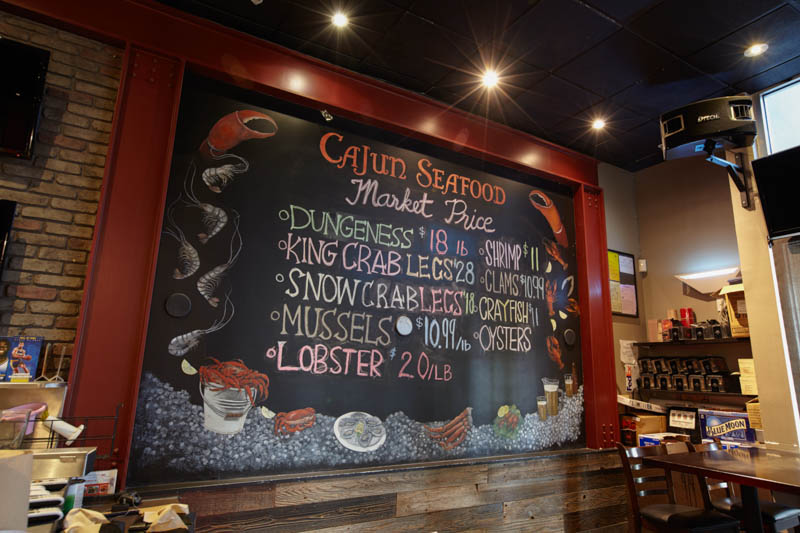 CAJUN SEAFOOD
Market Price
DUNGENESS $18 lb
KING CRAB LEGS $28
SNOW CRAB LEGS $18
MUSSELS $10.99/lb
LOBSTER $20/LB
SHRIMP $11
CLAMS $10.99
CRAYFISH $11
OYSTERS
BLUE MOON